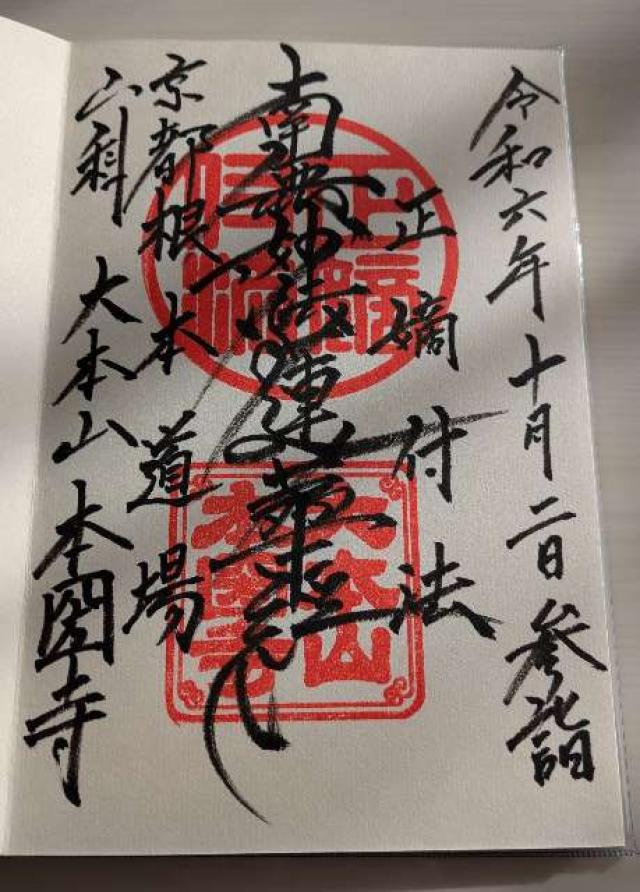 令和六年十月二日参詣
正嫡付法
南無妙法蓮華経
京都根本道場
山科 大本山 本圀寺
正嫡付法
大本山本圀寺